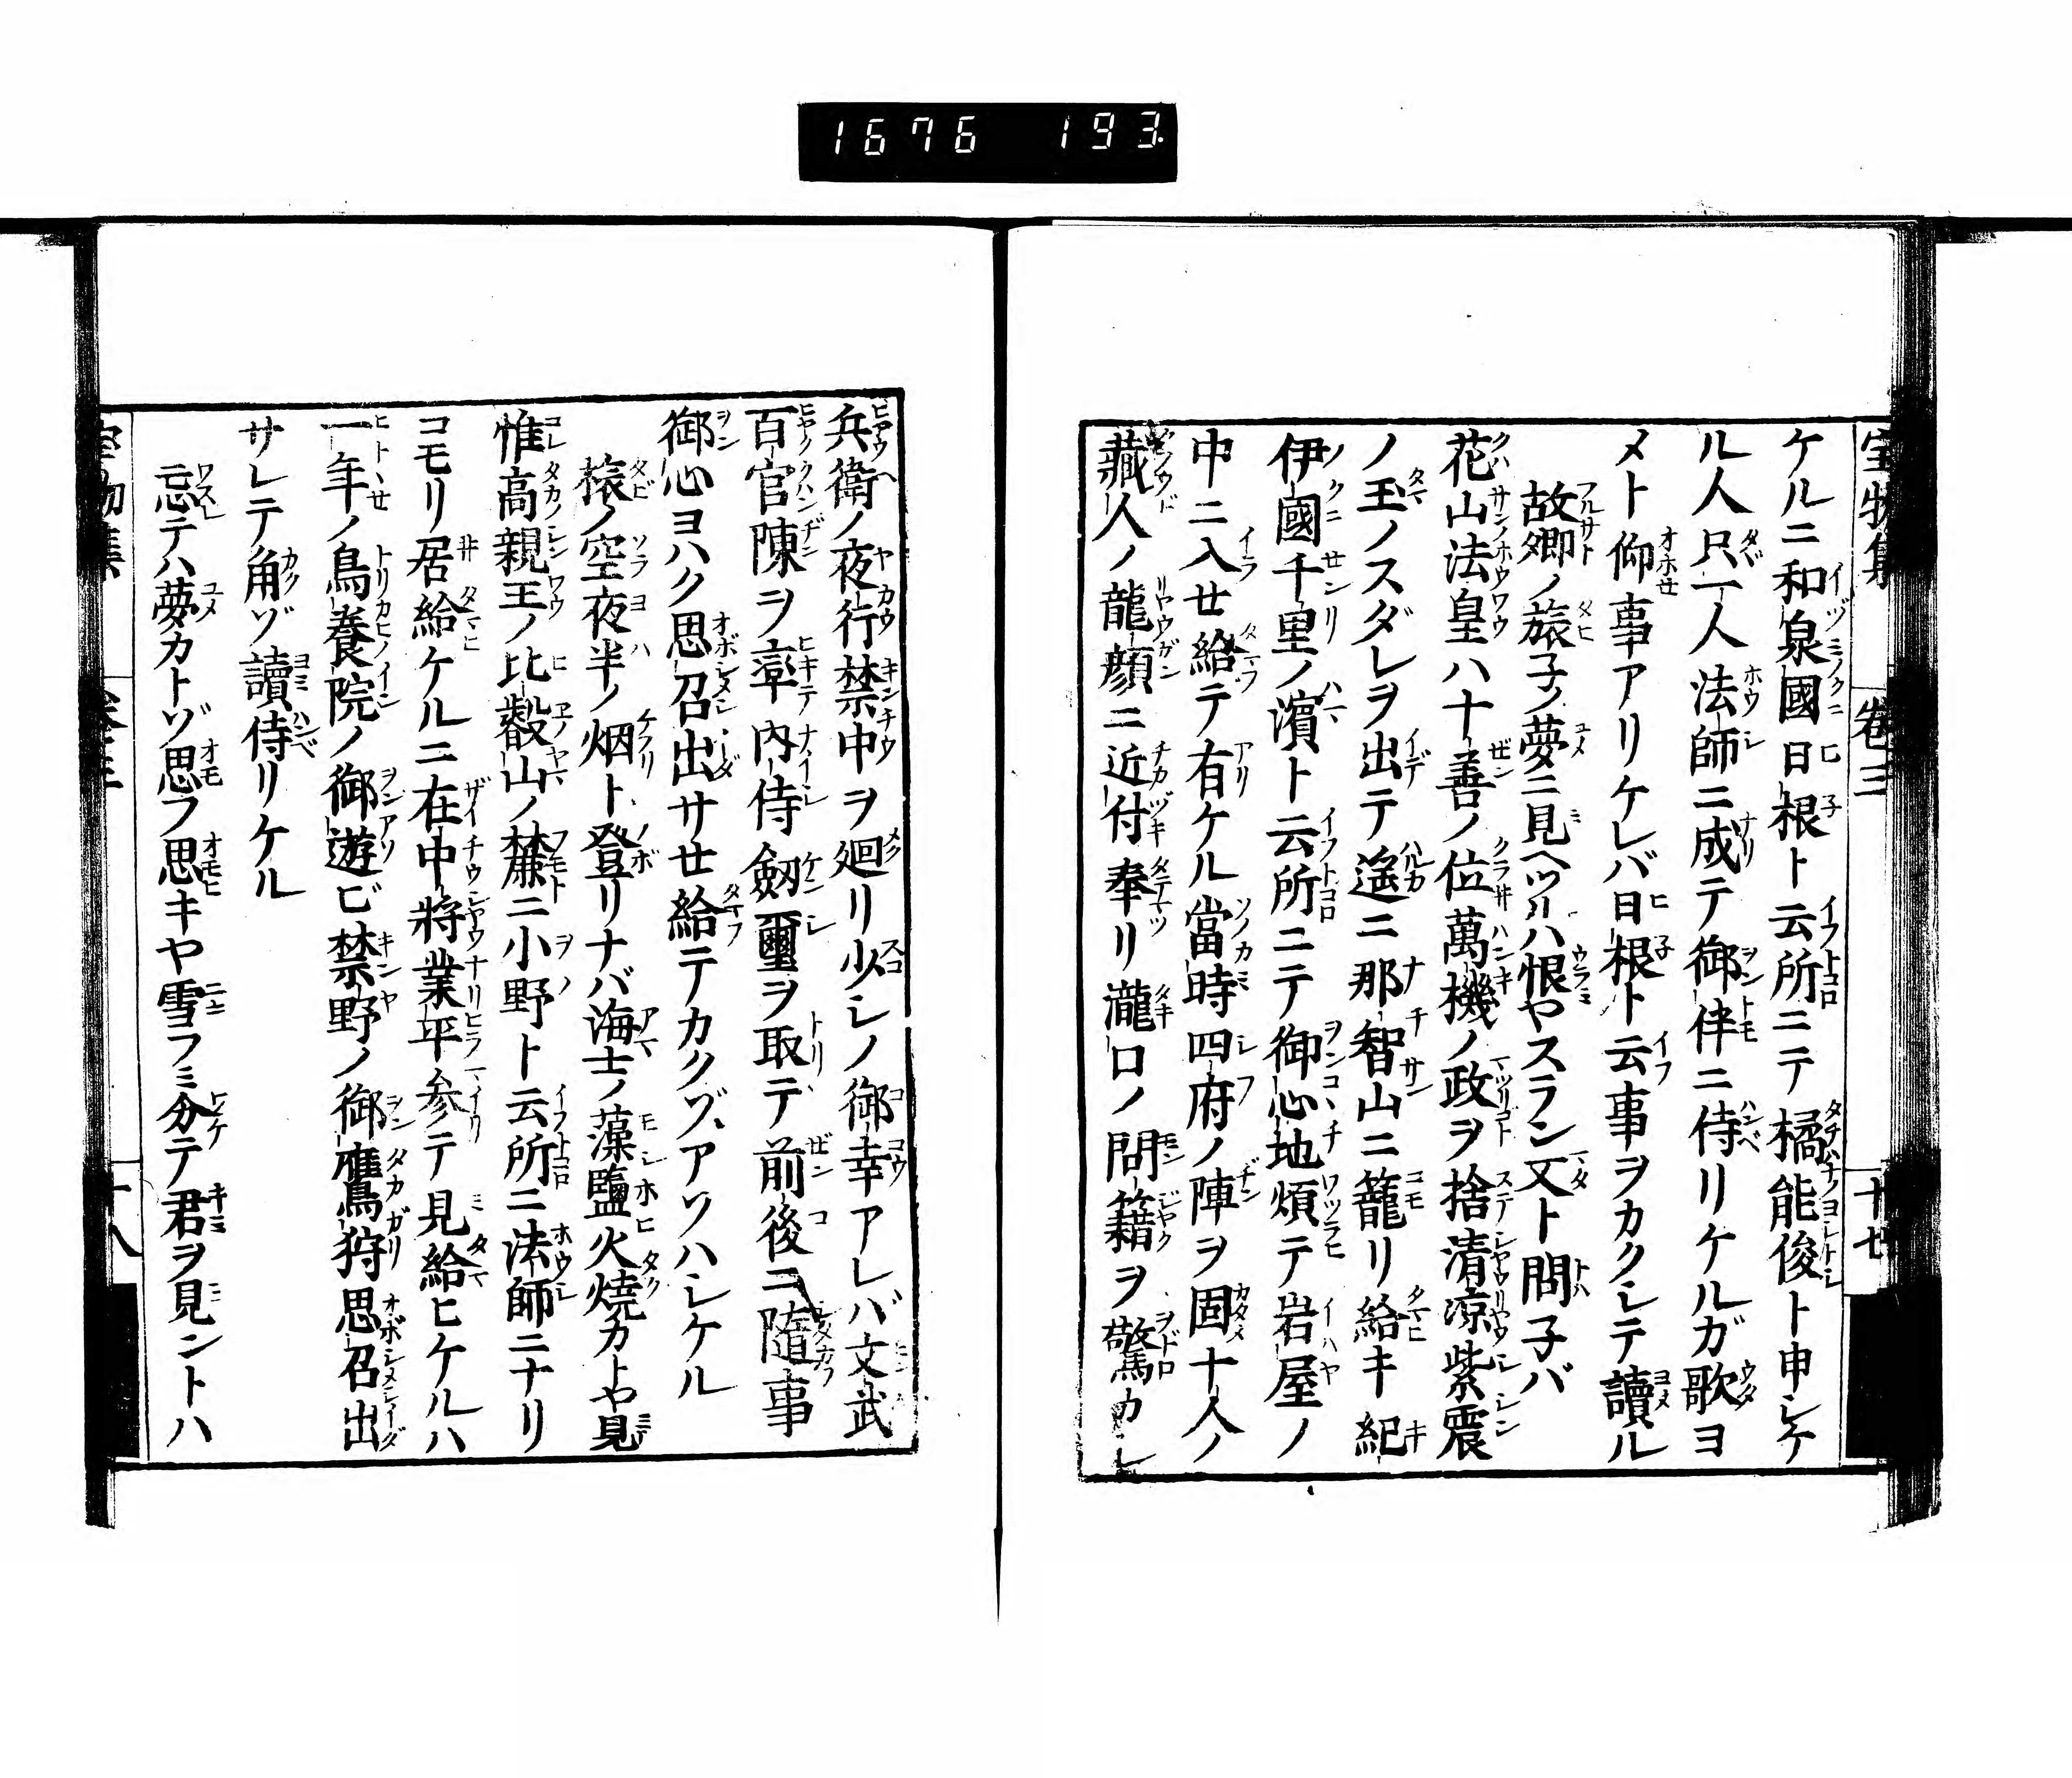 1676 193
宝物集 巻三 十七
ケルニ和泉國日根ト云所ニテ橘能俊ト申シケ
ル人只一人法師ニ成テ御伴ニ侍リケルガ歌ヨ
メト仰事アリケレバ日根ト云事ヲカクシテ讀ル
故郷ノ旅子ノ夢ニ見ヘツルハ恨ヤスラン又ト問子バ
花山法皇ハ十善ノ位萬機ノ政ヲ捨清涼紫震
ノ玉ノスダレヲ出テ遙ニ那智山ニ籠リ給キ紀
伊國千里ノ濱ト云所ニテ御心地煩テ岩屋ノ
中ニ入せ給テ有ケル當時四府ノ陣ヲ固十人ノ
藏人ノ龍顔ニ近付奉リ瀧口ノ問籍ヲ驚カシ
兵衛ノ夜行禁中ヲ廻リ少シノ御幸アレバ文武
百官陳ヲ率内侍劔璽ヲ取テ前後ニ隨事
御心ヨハク思召出サせ給テカクゾアソハシケル
旅ノ空夜半ノ烟ト登リナバ海士ノ藻鹽火焼カトヤ見
惟高親王ノ比叡山ノ麓ニ小野ト云所ニ法師ニナリ
コモリ居給ケルニ在中将業平参テ見給ヒケルハ
一年ノ鳥養院ノ御遊ビ禁野ノ御鷹狩思召出
サレテ角ゾ讀侍リケル
忘テハ夢カトゾ思フ思キヤ雪フミ分テ君ヲ見ントハ